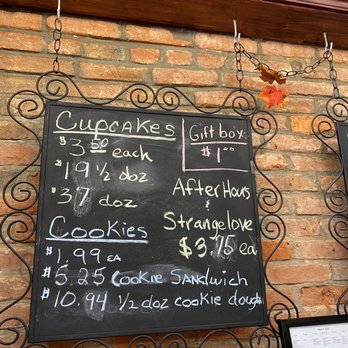 Cupcakes
$3.50 each
$19 1/2 doz
$37 doz
Gift box
$1.00
After Hours
&
Strangelove
$3.75 ea
Cookies
$1.99 EA
$5.25 Cookie Sandwich
$10.94 1/2 doz cookie dough